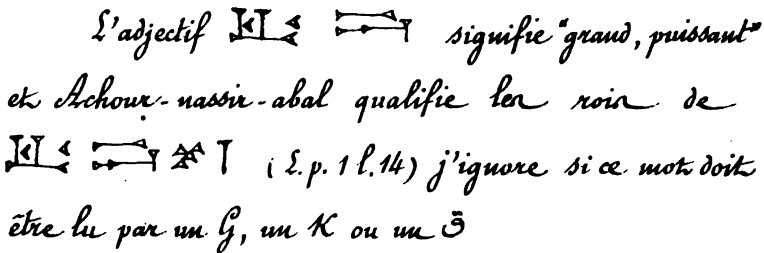 L'adjectif signifie "grand, puissant"
et Achour-nassir-abal qualifie les rois de
(L. p. 1 l. 14) j'ignore si ce mot doit
être lu par un G, un K ou un ق